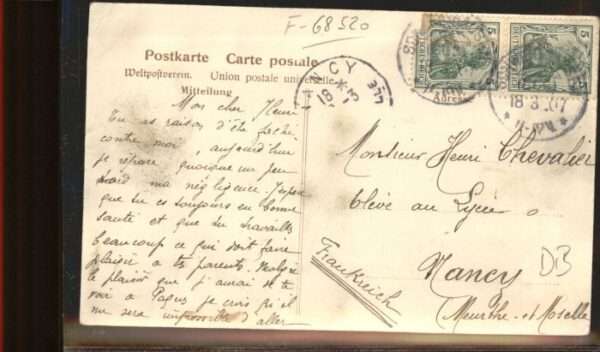 F-68520
Postkarte Carte postale
Weltpostverein. Union postale universelle.
Mitteilung
NANCY
18 3
5
5
18.3.07
Mon cher Henri
Tu as raison d'être fâché
contre moi, aujourd'hui
je répare quoique un peu
tard ma négligence. J'espère
que tu es toujours en bonne
santé et que tu travailles
beaucoup ce qui doit faire
plaisir à tes parents. Malgré
le plaisir que j'aurai de te
voir à Pâques je crois qu'il
me sera impossible d'aller
Monsieur Henri Chevalier
Elève au Lycée
Nancy
(Meurthe-et-Moselle
Frankreich
DB